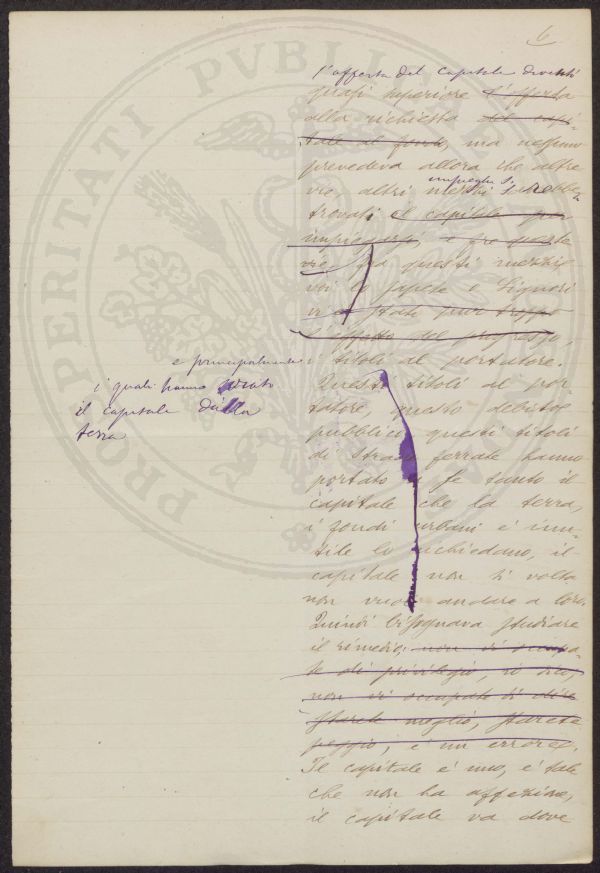 6
l'offerta del capitale diventi
quasi superiore l'offerta
alla richiesta del capi-
tale al fondo, ma nessuno
prevedeva allora che altre
impieghi si
vie, altri mezzi sarebbero
trovati il capitale per
impiegarsi, e fra queste
vie, fra questi mezzi
voi lo sapete o Signori
vi è stato pur troppo
l'effetto del progresso,
i titoli al portatore.
e principalmente
i quali hanno
il capitale dalla
terra
Questi titoli al por
tatore, questo debito
pubblico questi titoli
di strade ferrate hanno
portato a se tanto il
capitale che la terra,
i fondi urbani è inu-
tile lo richiedano, il
capitale non si volta
non vuole andare a loro.
Quindi bisognava studiare
il rimedio, non vi occupa-
te di privilegio, io dico,
non vi occupate di dire
starete meglio, starete
peggio, è un errore.
Il capitale è uno, è tale
che non ha affezione,
il capitale va dove
PROSPERITATI PVBLICAE